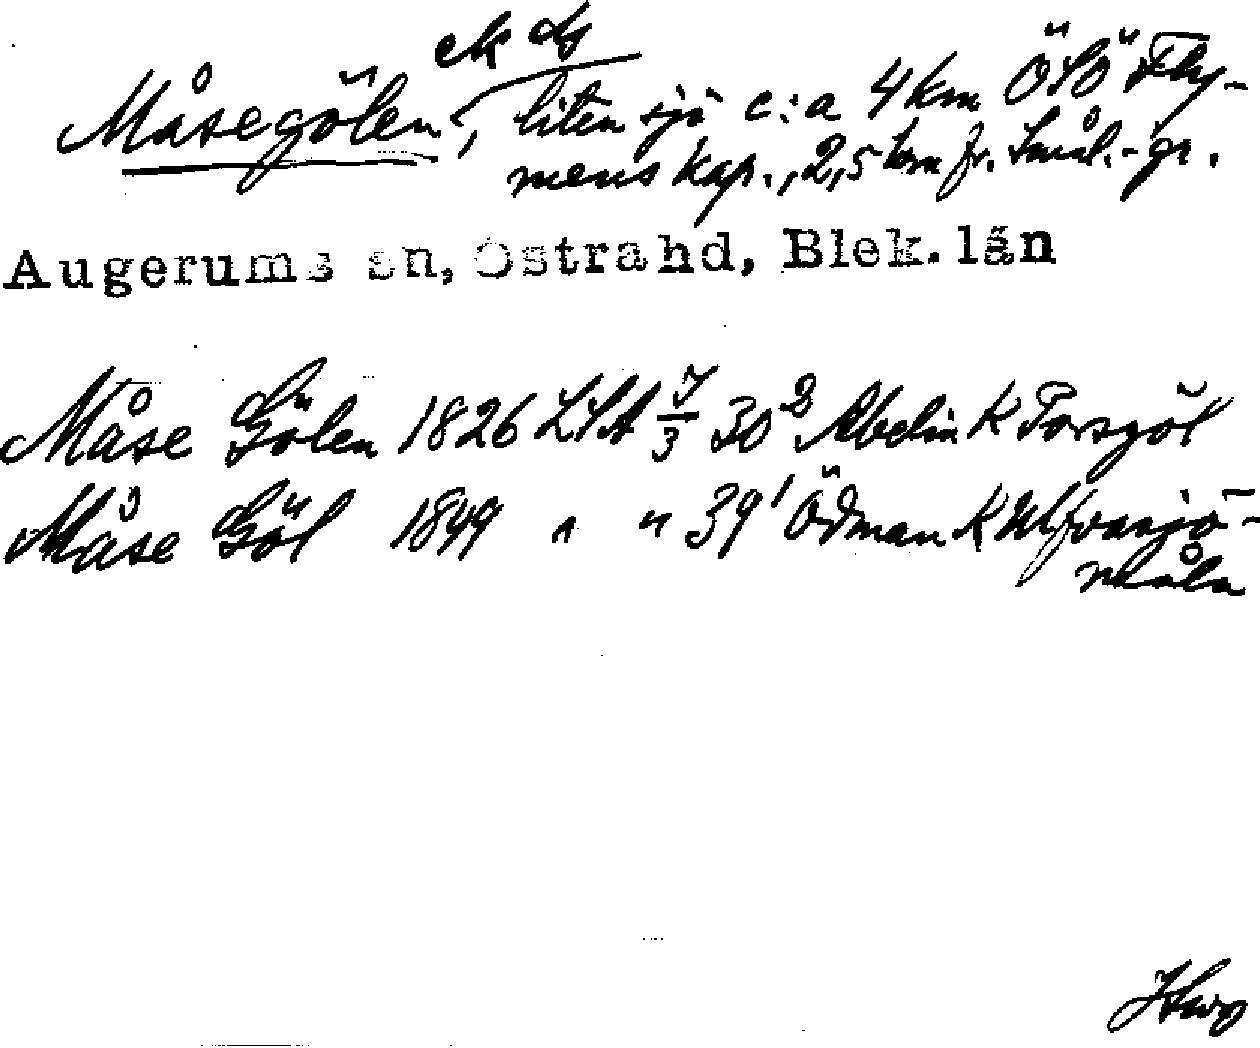 ek ds
Måsegölen, liten sjö c:a 4 km ÖSÖ Fly-
mens kap., 2,5 km fr. Smål.-gr.
Augerums sn, Östra hd, Blek. län
Måse Gölen 1826 LSA 7/3 30² Abelin K Torsgöl
Måse Göl 1849 " " 39¹ Ödman K Ulfvasjö-
måla